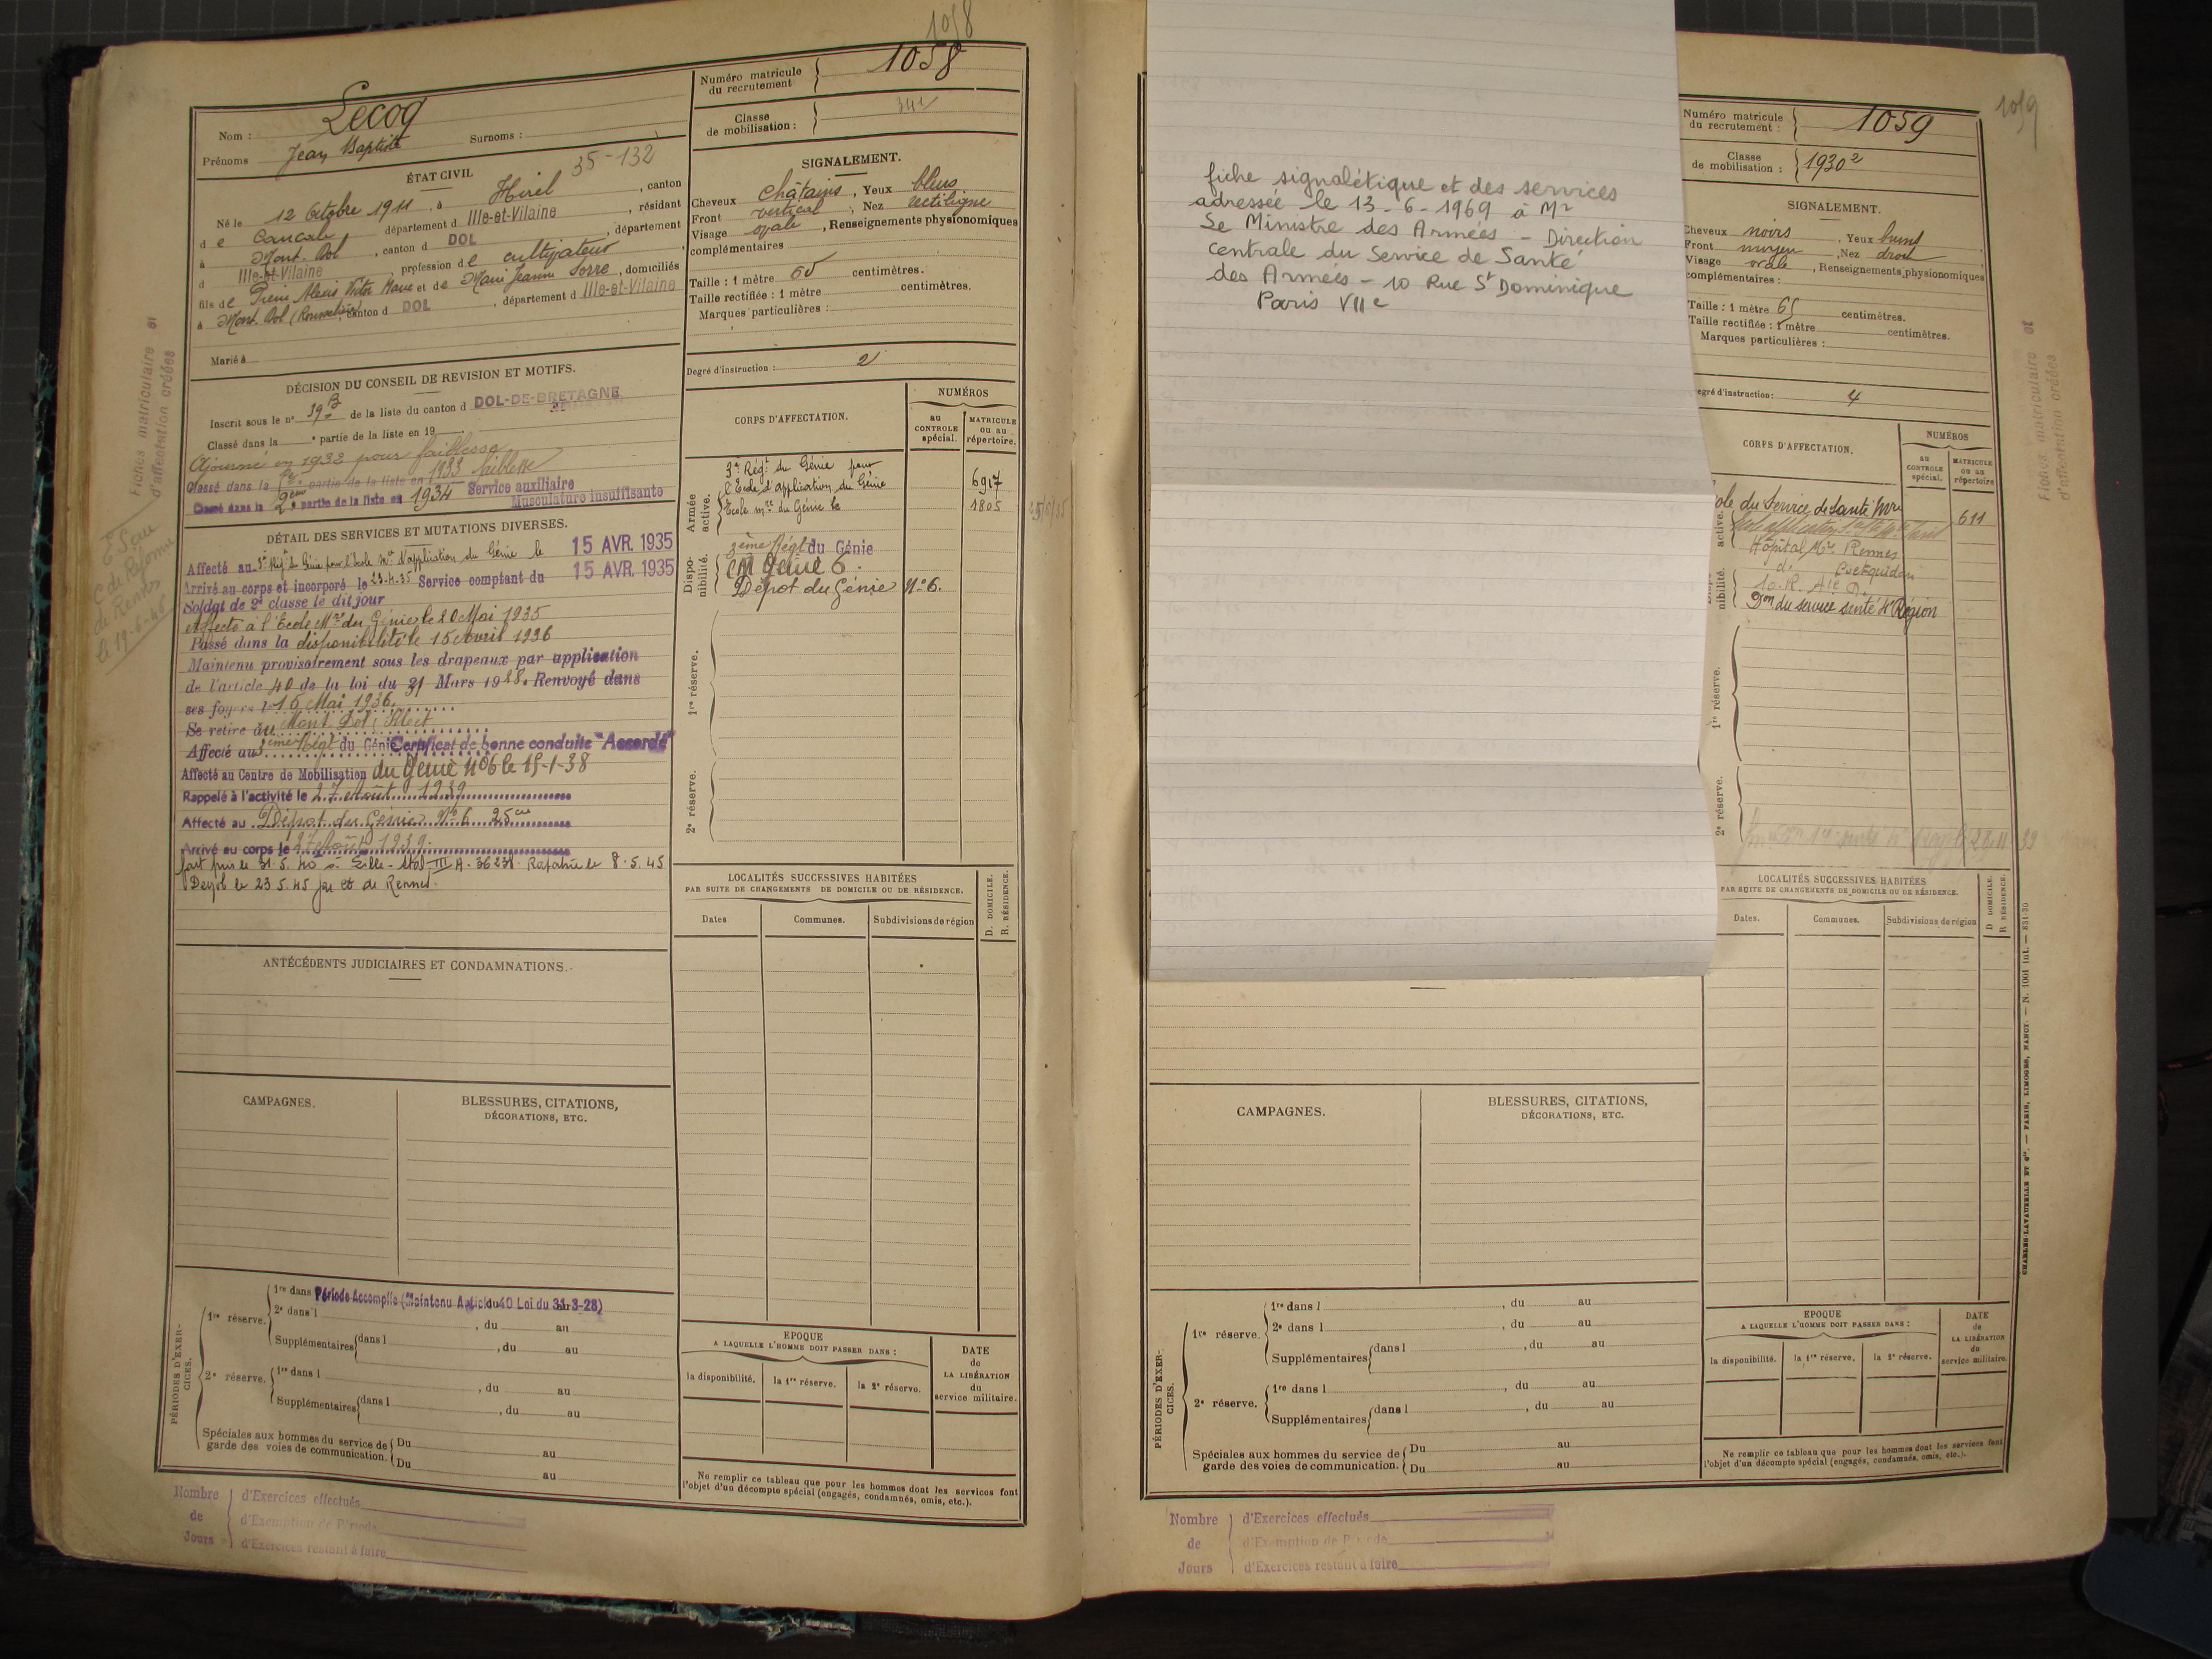 1058
Lecoq
Nom :
Surnoms :
Prénoms Jean Baptiste
35-132
ÉTAT CIVIL
Né le 12 Octobre 1911, à Hirel, canton
de Cancale, département d Ille-et-Vilaine, résidant
à Mont. Dol, canton d DOL, département
d Ille-et-Vilaine, profession de cultivateur,
fils de Pierre Alexis Victor Marie et de Marie Jeanne Sorre, domiciliés
à Mont. Dol, canton d DOL, département d Ille-et-Vilaine
Marié à
DÉCISION DU CONSEIL DE REVISION ET MOTIFS.
Inscrit sous le n° 39 B de la liste du canton d DOL-DE-BRETAGNE
Classé dans la e partie de la liste en 19
Ajourné en 1932 pour faiblesse
Classé dans la partie de la liste en 1933 faiblesse
Classé dans la 2eme partie de la liste en 1934 Service auxiliaire
Musculature insuffisante
DÉTAIL DES SERVICES ET MUTATIONS DIVERSES.
Affecté au 3e Régt du Génie pour l'école mre d'application du Génie le 15 AVR. 1935
Arrivé au corps et incorporé le 23.4.35 Service comptant du 15 AVR. 1935
Soldat de 2e classe le dit jour
Affecté à l'Ecole Mre du Génie le 20 Mai 1935
Passé dans la disponibilité le 15 Avril 1936
Maintenu provisoirement sous les drapeaux par application
de l'article 40 de la loi du 31 Mars 1928. Renvoyé dans
ses foyers le 15 Mai 1936.
Se retire au Mont Dol,
Affecté au 3ème Régt du Génie Certificat de bonne conduite "Accordé"
Affecté au Centre de Mobilisation du Génie N°6 le 15-1-38
Rappelé à l'activité le 27 Août 1939
Affecté au Dépôt du Génie N° 6 25 cie
Arrivé au corps le 27 Août 1939.
fait pris le 31.5.40 à Lille - Stal III A. Rapatrié le 8.5.45
le 23.5.45 par et de Rennes.
ANTÉCÉDENTS JUDICIAIRES ET CONDAMNATIONS.
CAMPAGNES.
BLESSURES, CITATIONS,
DÉCORATIONS, ETC.
PÉRIODES D'EXERCICES.
1re réserve.
1re dans Période Accomplie (Maintenu Article 40 Loi du 31-3-28)
2e dans l , du au
Supplémentaires dans l , du au
2e réserve.
1re dans l , du au
Supplémentaires dans l , du au
Spéciales aux hommes du service de
garde des voies de communication.
Du au
Du au
Nombre
de
Jours
d'Exercices effectués
d'Exemption de Période
d'Exercices restant à faire
Fiches matriculaire et
d'affectation créées
C de Réforme
de Rennes
Numéro matricule
du recrutement
1058
Classe
de mobilisation :
SIGNALEMENT.
Cheveux châtains, Yeux bleus
Front vertical, Nez rectiligne
Visage ovale, Renseignements physionomiques
complémentaires
Taille : 1 mètre 60 centimètres.
Taille rectifiée : 1 mètre centimètres.
Marques particulières :
Degré d'instruction : 2
CORPS D'AFFECTATION.
NUMÉROS
au
CONTROLE
spécial.
MATRICULE
ou au
répertoire.
Armée
active.
3e Régt du Génie pour
l'Ecole d'application du Génie
6917
Ecole mre du Génie le
1805
Disponibilité.
3ème Régt du Génie
CM Génie 6.
Dépot du Génie N°6.
1re réserve.
2e réserve.
LOCALITÉS SUCCESSIVES HABITÉES
PAR SUITE DE CHANGEMENTS DE DOMICILE OU DE RÉSIDENCE.
D. DOMICILE.
R. RÉSIDENCE.
Dates
Communes.
Subdivisions de région
EPOQUE
A LAQUELLE L'HOMME DOIT PASSER DANS :
la disponibilité.
la 1re réserve.
la 2e réserve.
DATE
de
LA LIBÉRATION
du
service militaire.
Ne remplir ce tableau que pour les hommes dont les services font
l'objet d'un décompte spécial (engagés, condamnés, omis, etc.).
fiche signalétique et des services
adressée le 13-6-1969 à Mr
Le Ministre des Armées - Direction
centrale du Service de Santé
des Armées - 10 Rue St Dominique
Paris VIIe
CAMPAGNES.
BLESSURES, CITATIONS,
DÉCORATIONS, ETC.
PÉRIODES D'EXERCICES.
1re réserve.
1re dans l , du au
2e dans l , du au
Supplémentaires dans l , du au
2e réserve.
1re dans l , du au
Supplémentaires dans l , du au
Spéciales aux hommes du service de
garde des voies de communication.
Du au
Du au
Nombre
de
Jours
d'Exercices effectués
d'Exemption de Période
d'Exercices restant à faire
1059
Numéro matricule
du recrutement :
1059
Classe
de mobilisation :
1930 2
SIGNALEMENT.
Cheveux noirs, Yeux bruns
Front moyen, Nez droit
Visage ovale, Renseignements physionomiques
complémentaires :
Taille : 1 mètre 65 centimètres.
Taille rectifiée : 1 mètre centimètres.
Marques particulières :
egré d'instruction : 4
CORPS D'AFFECTATION.
NUMÉROS
au
CONTROLE
spécial.
MATRICULE
ou au
répertoire
active.
ole du Service de Santé Mre
611
Hôpital Mre Rennes
Coëtquidan
nibilité.
Don du service santé 4e Région
1re réserve.
2e réserve.
LOCALITÉS SUCCESSIVES HABITÉES
PAR SUITE DE CHANGEMENTS DE DOMICILE OU DE RÉSIDENCE.
D DOMICILE.
R RÉSIDENCE.
Dates.
Communes.
Subdivisions de région
EPOQUE
A LAQUELLE L'HOMME DOIT PASSER DANS :
la disponibilité.
la 1re réserve.
la 2e réserve.
DATE
de
LA LIBÉRATION
du
service militaire.
Ne remplir ce tableau que pour les hommes dont les services font
l'objet d'un décompte spécial (engagés, condamnés, omis, etc.).
Fiches matriculaire et
d'affectation créées
CHARLES-LAVAUZELLE ET Cie. — PARIS, LIMOGES, NANCY. — N. 1001 int. — 831-30